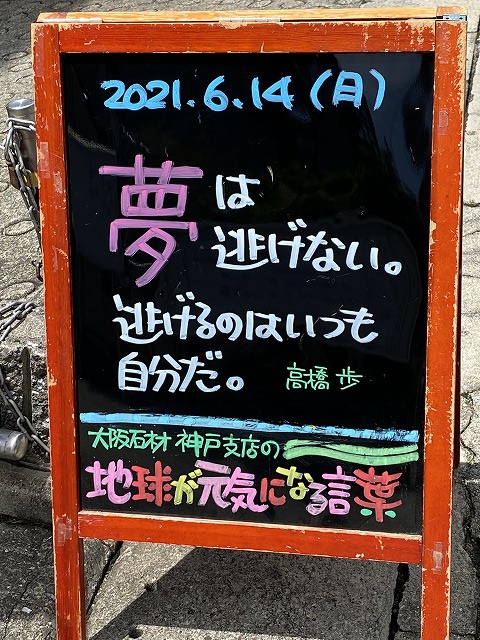 2021.6.14(日)
夢は
逃げない。
逃げるのはいつも
自分だ。 高橋 歩
大阪石材 神戸支店の
地球が元気になる言葉